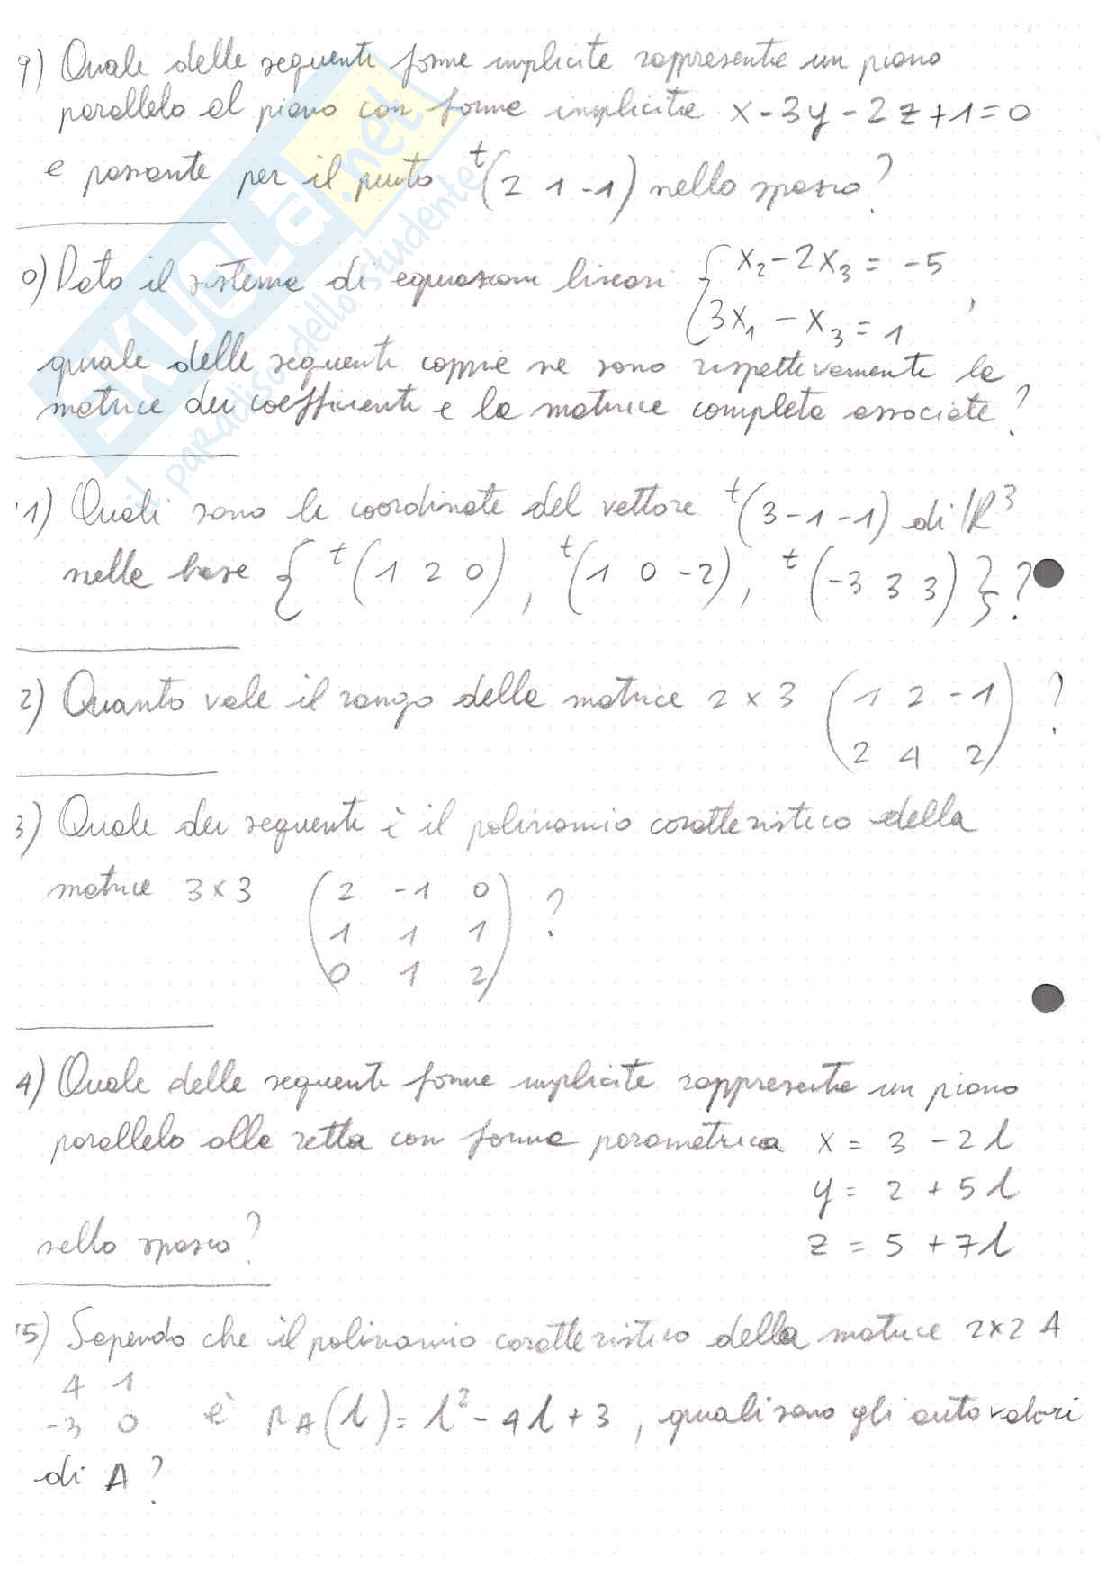 9) Quale delle seguenti forme implicite rappresenta un piano
parallelo al piano con forma implicita x-3y-2z+1=0
e passante per il punto t(2 1 -1) nello spazio?
0) Dato il sistema di equazioni lineari { x₂-2x₃ = -5
3x₁ - x₃ = 1 ,
quale delle seguenti coppie ne sono rispettivamente la
matrice dei coefficienti e la matrice completa associate?
11) Quali sono le coordinate del vettore t(3 -1 -1) di ℝ³
nella base { t(1 2 0), t(1 0 -2), t(-3 3 3) }?
2) Quanto vale il rango della matrice 2 x 3 (1 2 -1) ?
(2 4 2)
3) Quale dei seguenti è il polinomio caratteristico della
matrice 3x3 (2 -1 0) ?
(1 1 1)
(0 1 2)
4) Quale delle seguenti forme implicite rappresenta un piano
parallelo alla retta con forma parametrica x = 3 - 2l
y = 2 + 5l
nello spazio? z = 5 + 7l
15) Sapendo che il polinomio caratteristico della matrice 2x2 A
4 1
-3 0 è pA(l) = l² - 4l + 3, quali sono gli autovalori
di A?
SKUOLA.net
il paradiso dello studente